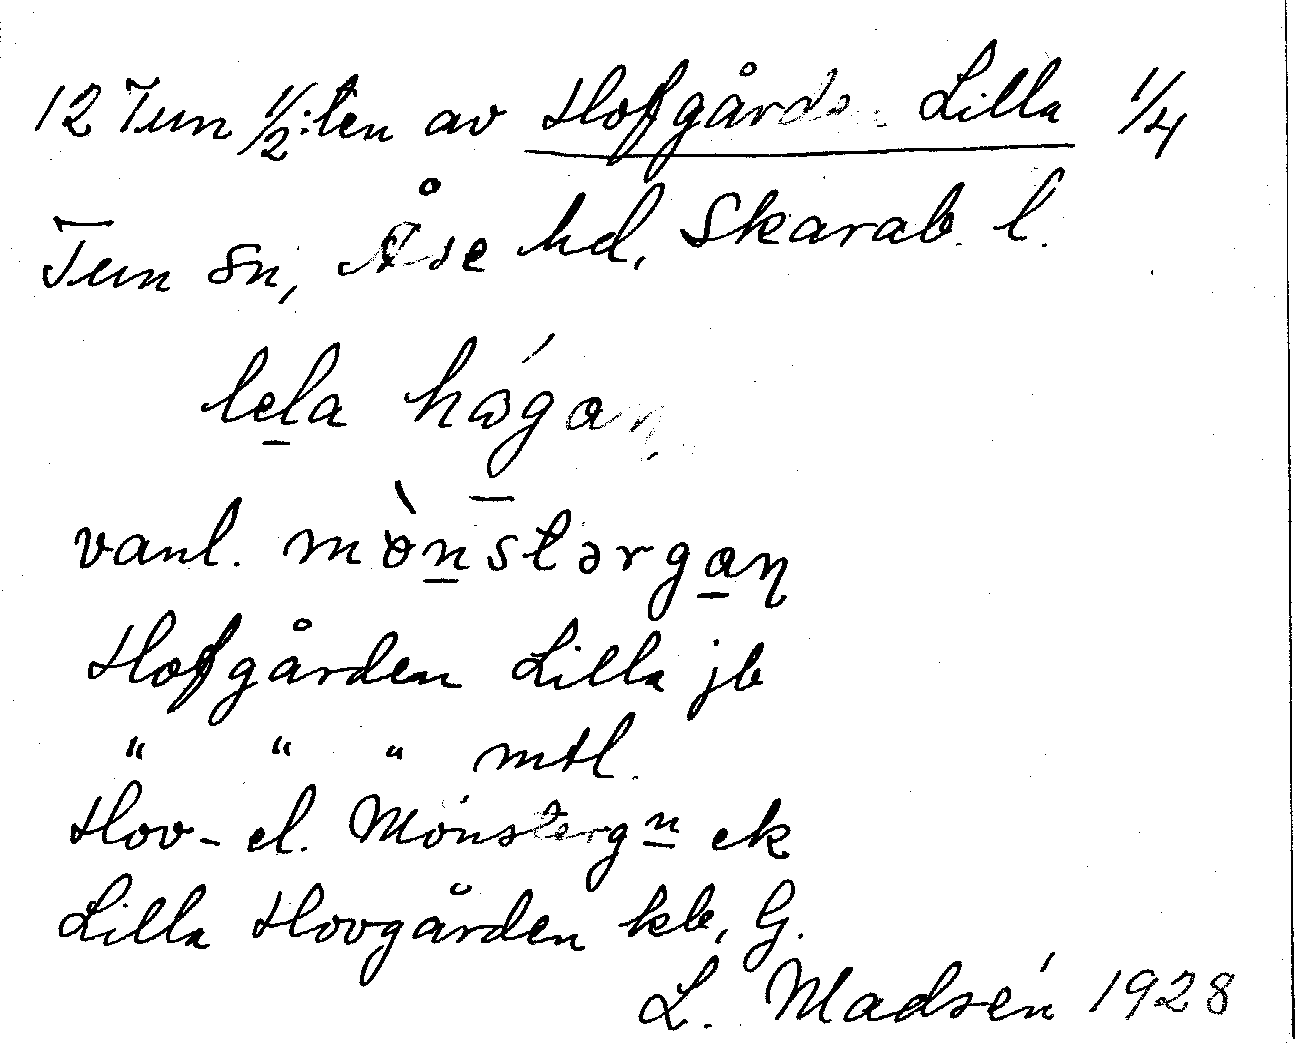 12 Tun 1/2:ten av Hofgården Lilla 1/4
Tun sn, Åse hd, Skarab. l.
lela hågan
vanl. mònstərgaŋ
Hofgården Lilla jb
" " " mtl.
Hov- el. Mönstergn ek
Lilla Hovgården kb, G.
L. Madsén 1928